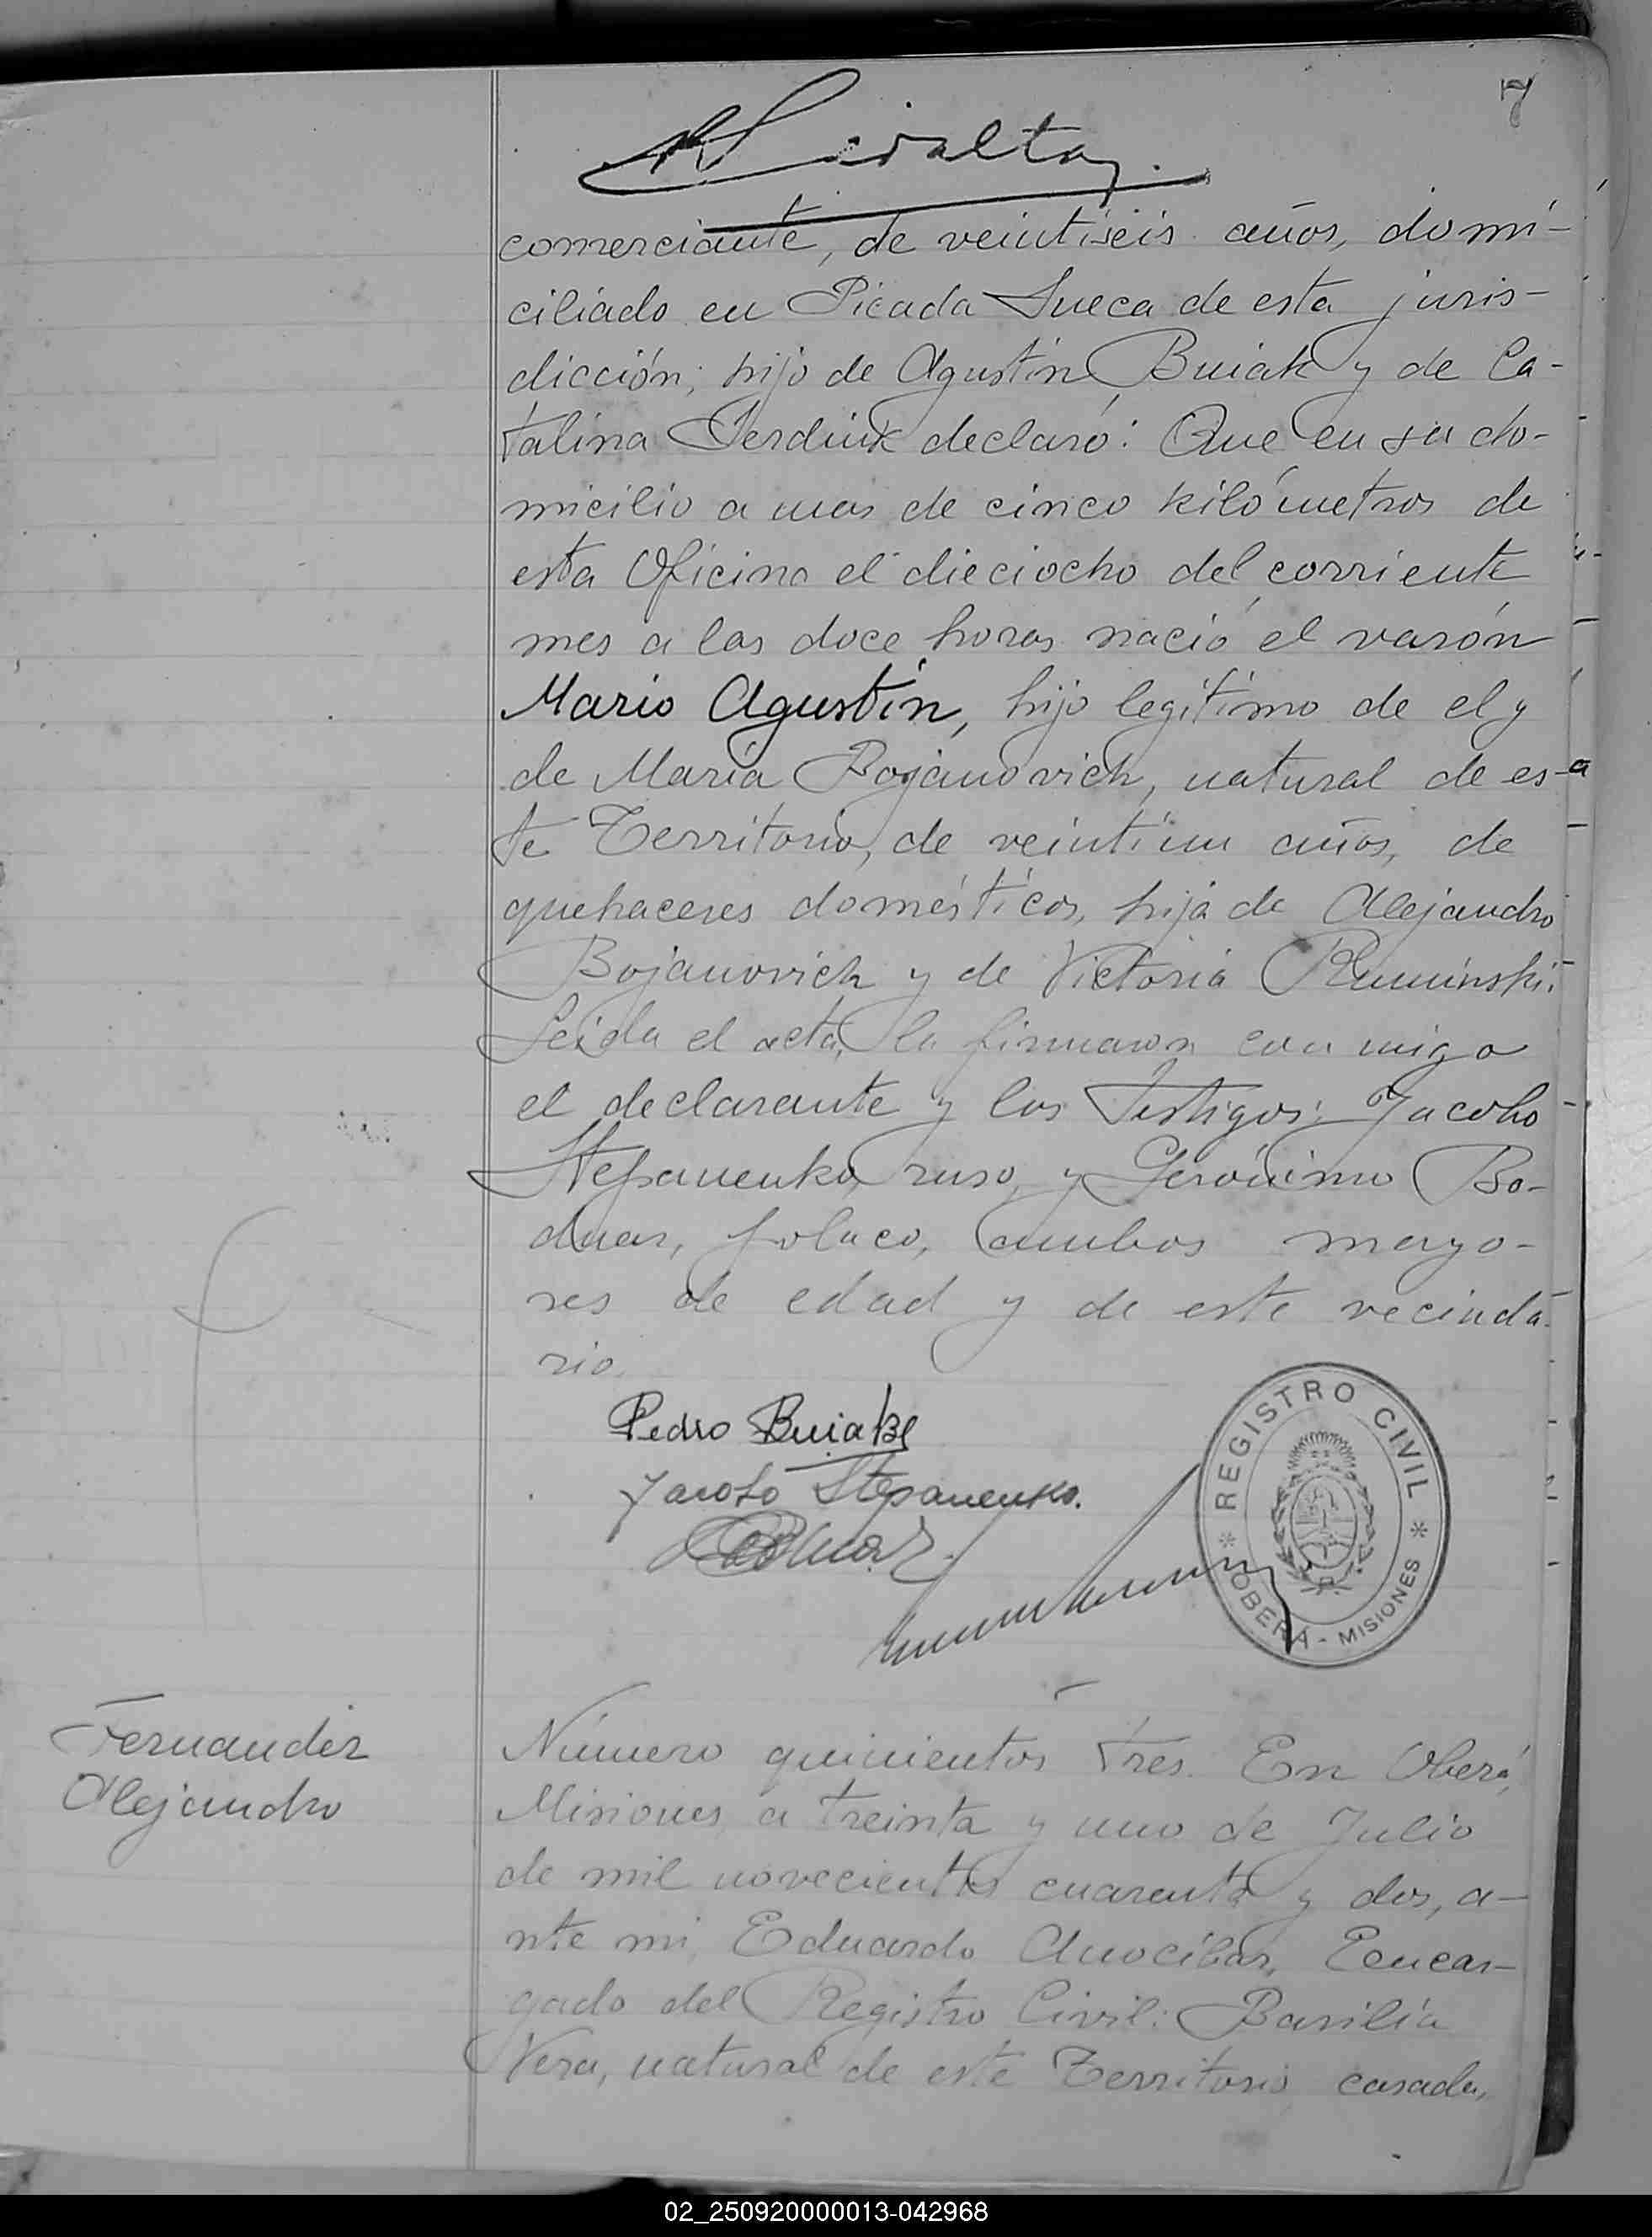 7
comerciante, de veintiseis años, domi-
ciliado en Picada Sueca de esta juris-
dicción; hijo de Agustín Buiak y de Ca-
talina Serdiuk declaró: Que en su do-
micilio a mas de cinco kilómetros de
esta Oficina el dieciocho del corriente
mes a las doce horas nació el varón
Mario Agustín, hijo legítimo de el y
de María Bojanovich, natural de es-
te Territorio, de veintiun años, de
quehaceres domésticos, hija de Alejandro
Bojanovich y de Victoria Ruminski.
Leida el acta, la firmaron conmigo
el declarante y los Testigos: Jacobo
Stepanenko, ruso, y Gerónimo Bo-
dnar, polaco, ambos mayo-
res de edad y de este vecinda-
rio.
Pedro Buiak
Jacobo Stepanenko.
REGISTRO CIVIL
* OBERÁ - MISIONES *
Fernandez
Alejandro
Número quinientos tres. En Oberá,
Misiones a treinta y uno de Julio
de mil novecientos cuarenta y dos, a-
nte mi, Eduardo Anocíbar, Encar-
gado del Registro Civil: Basilia
Vera, natural de este Territorio, casada,
02_250920000013-042968